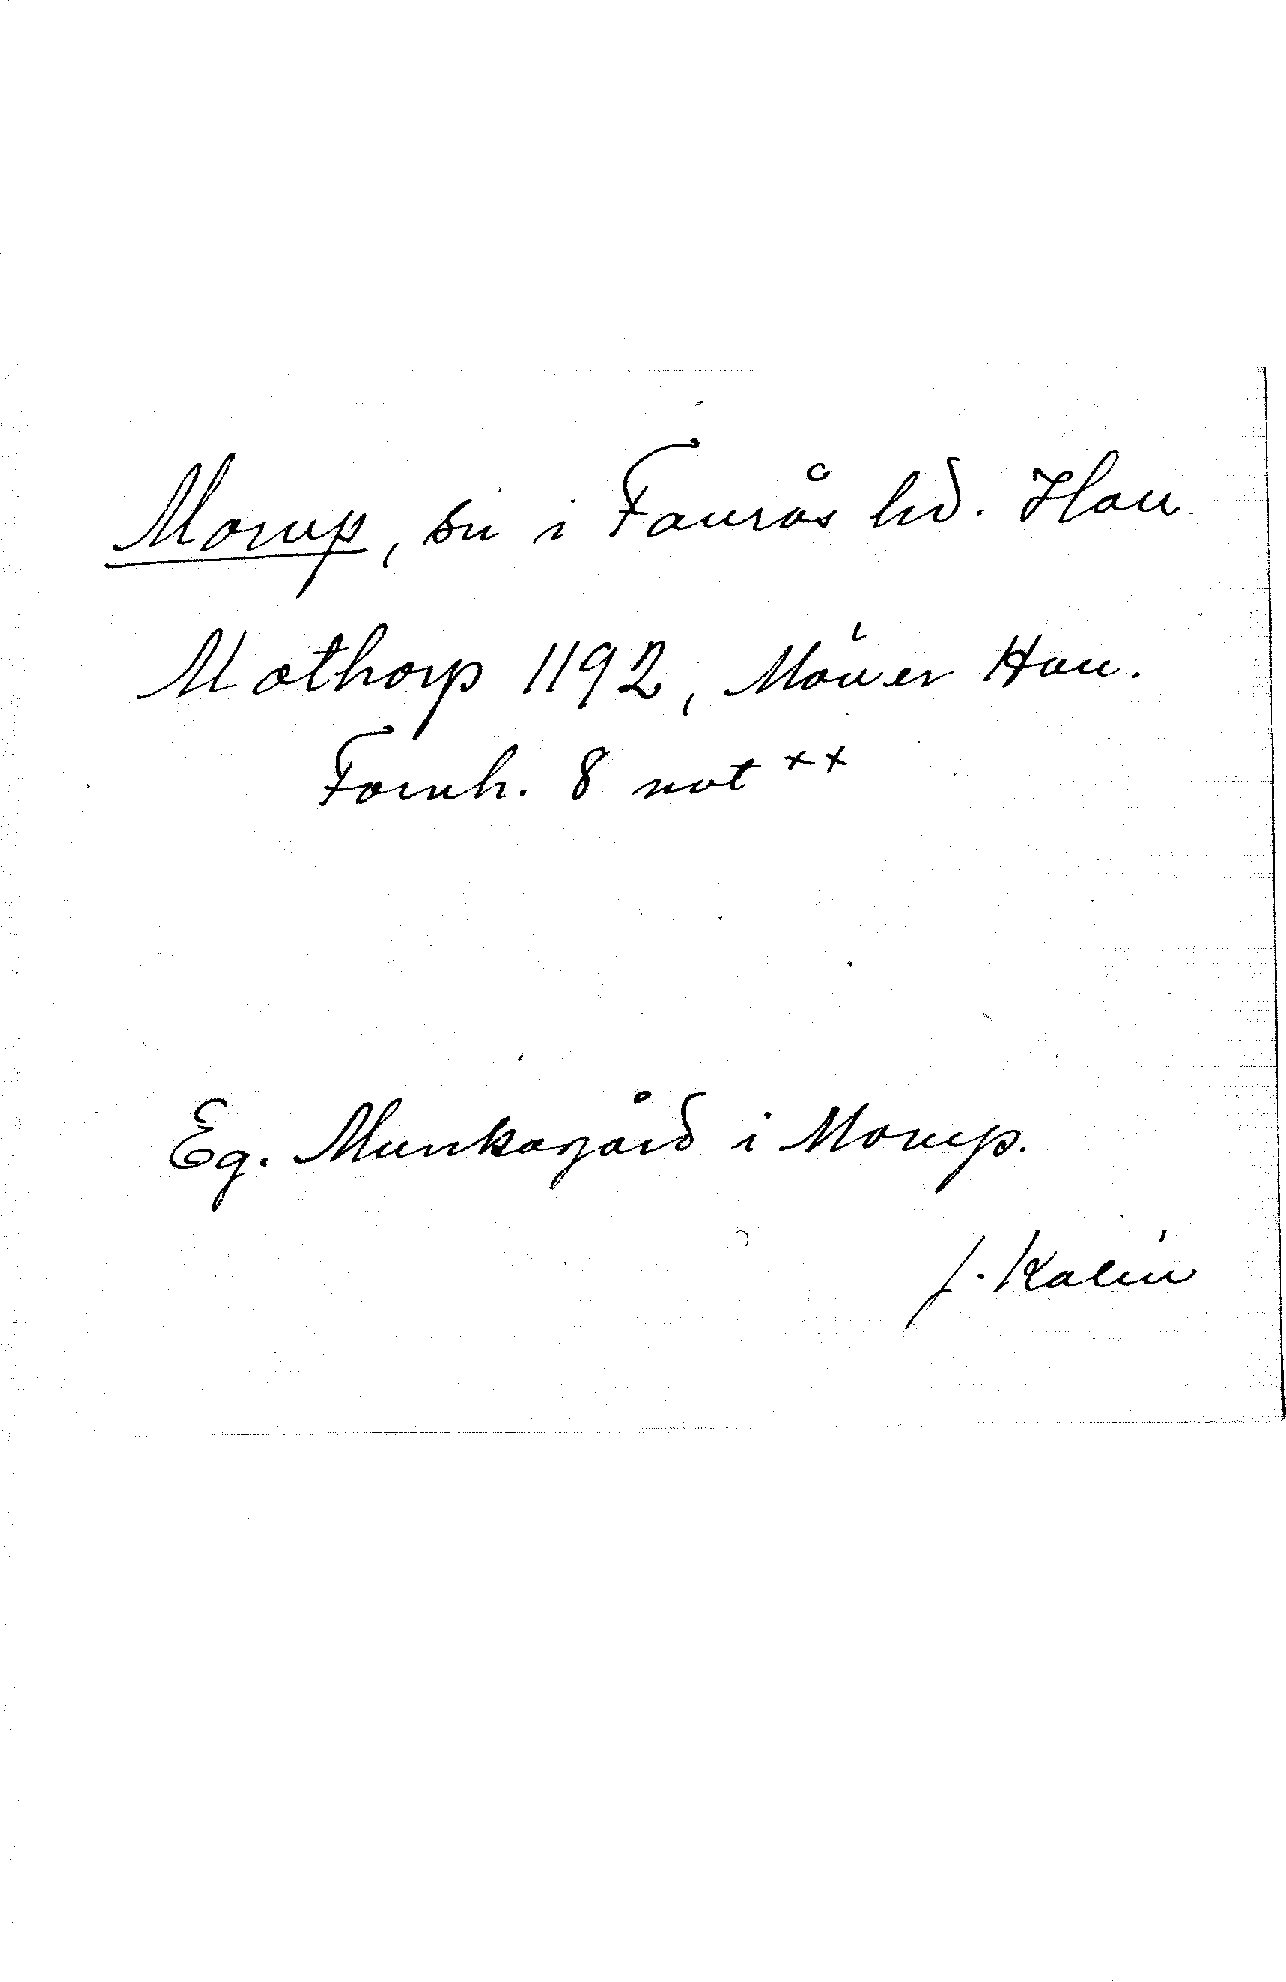 Morup, sn i Faurås hd. Hall
Mothorp 1192, Möller Hall.
Fornh. 8 not ××
Eg. Munkagård i Morup.
J. Kalén